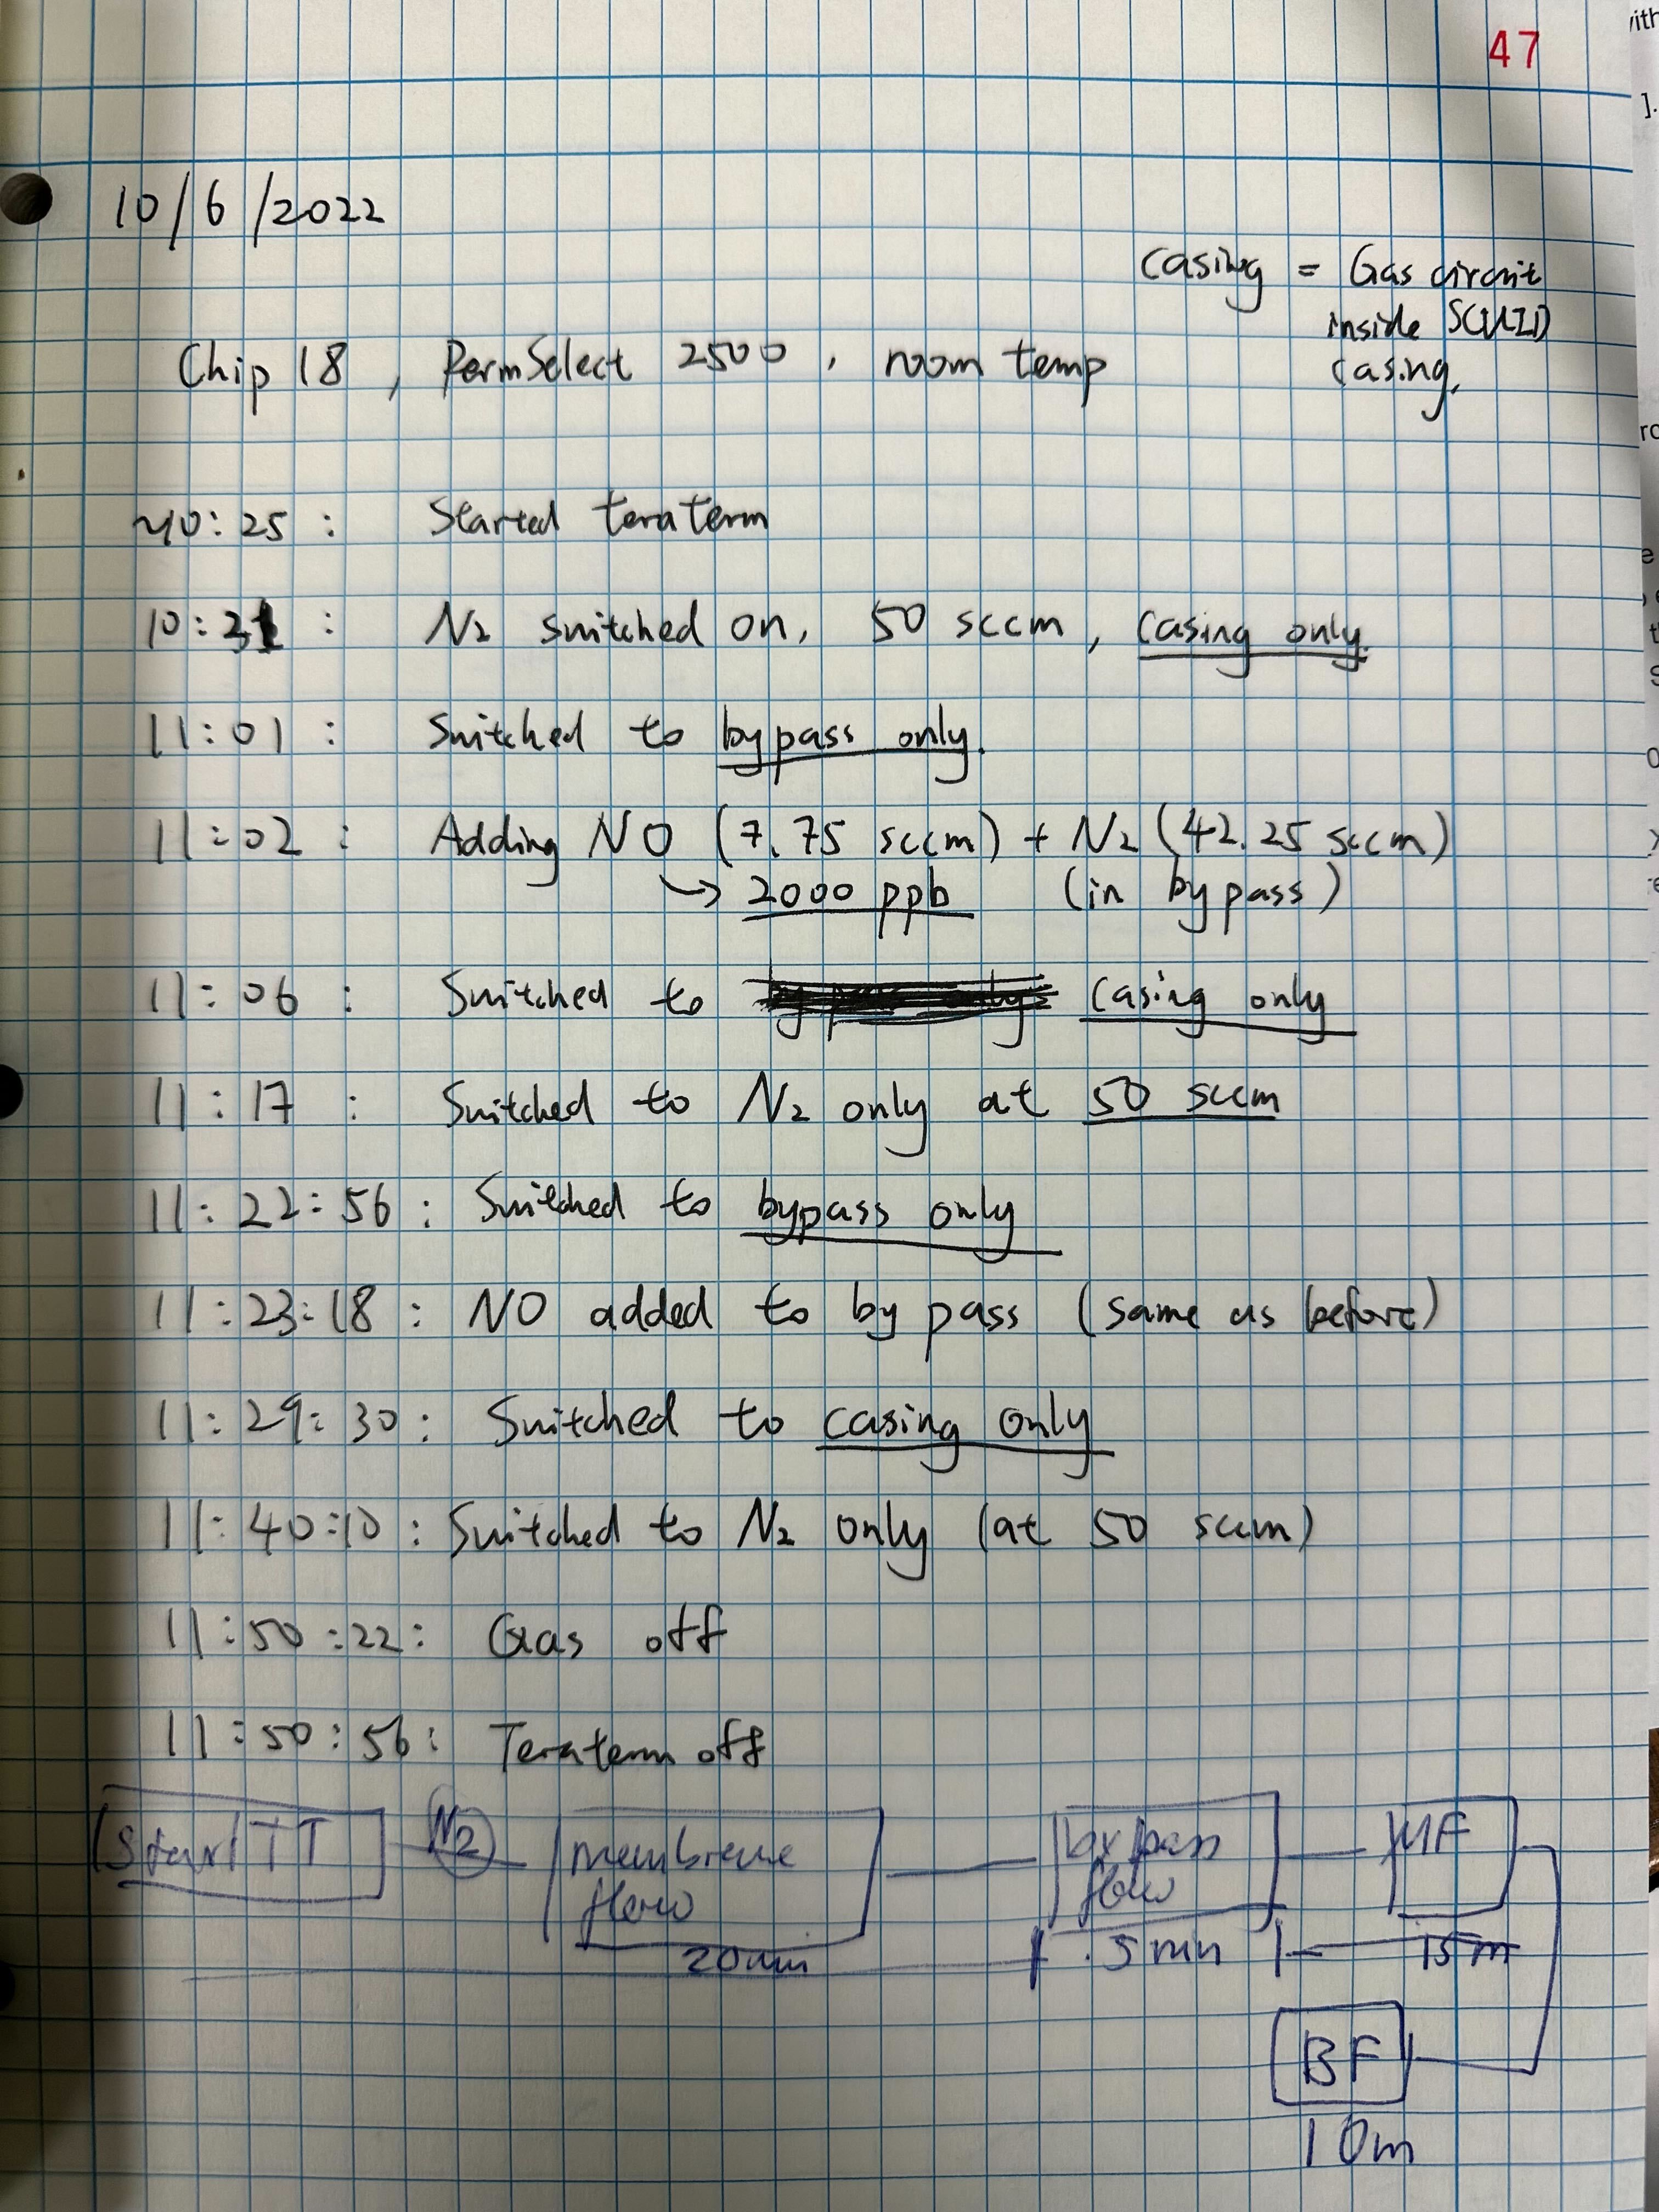 47
10/6/2022
casing = Gas circuit
inside SCUID
casing.
Chip 18, PermSelect 2500, room temp
~10:25 : Started teraterm
10:31 : N2 switched on, 50 sccm, casing only.
11:01 : Switched to bypass only.
11:02 : Adding NO (7.75 sccm) + N2 (42.25 sccm)
→ 2000 ppb (in bypass)
11:06 : Switched to casing only
11:17 : Switched to N2 only at 50 sccm
11:22:56 : Switched to bypass only
11:23:18 : NO added to bypass (same as before)
11:29:30 : Switched to casing only
11:40:10 : Switched to N2 only (at 50 sccm)
11:50:22 : Gas off
11:50:56 : Teraterm off
Start TT N2 membrane bypass MF
flow flow
20min 5 min 15 m
BF
10m